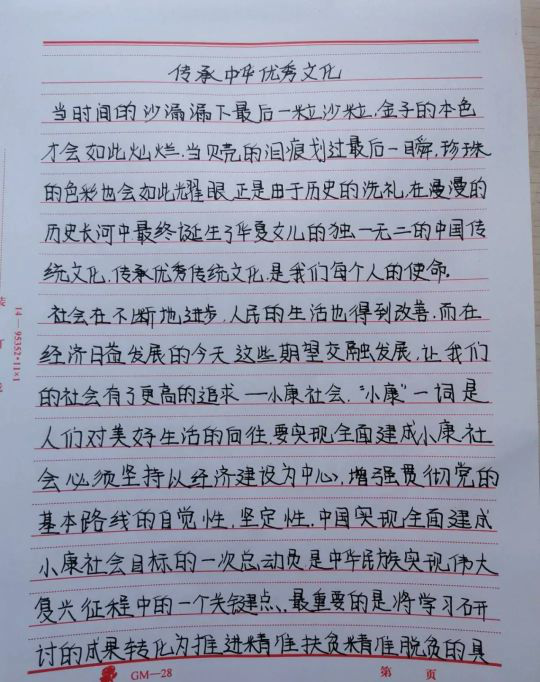 传承中华优秀文化
当时间的沙漏漏下最后一粒沙粒,金子的本色
才会如此灿烂.当贝壳的泪痕划过最后一瞬,珍珠
的色彩也会如此耀眼.正是由于历史的洗礼,在漫漫的
历史长河中最终诞生了华夏女儿的独一无二的中国传
统文化,传承优秀传统文化,是我们每个人的使命。
社会在不断地进步,人民的生活也得到改善,而在
经济日益发展的今天,这些期望交融发展,让我们
的社会有了更高的追求—小康社会,"小康"一词是
人们对美好生活的向往,要实现全面建成小康社
会必须坚持以经济建设为中心,增强贯彻党的
基本路线的自觉性,坚定性.中国实现全面建成
小康社会目标的一次总动员,是中华民族实现伟大
复兴征程中的一个关键点、最重要的是将学习研
讨的成果转化为推进精准扶贫精准脱贫的具
14—95352·11×1
装
订
线
GM—28
第 页